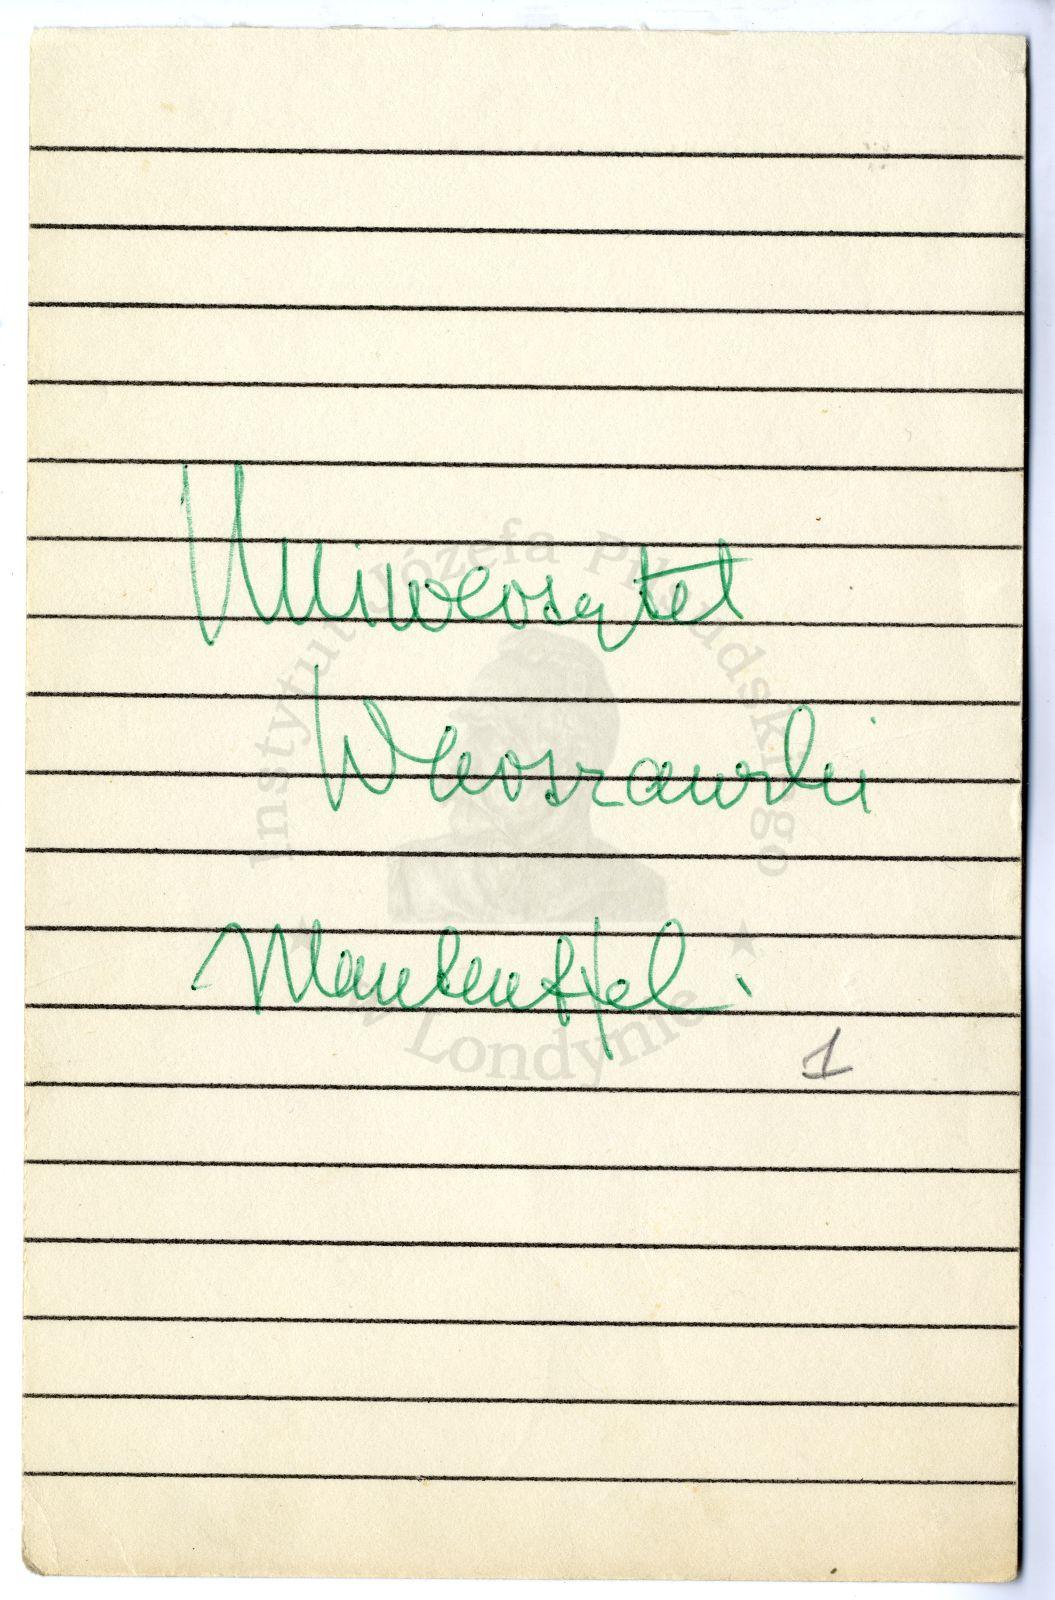 Uniwersytet
Warszawski
Manteuffel.
1
Instytut Józefa Piłsudskiego
w Londynie